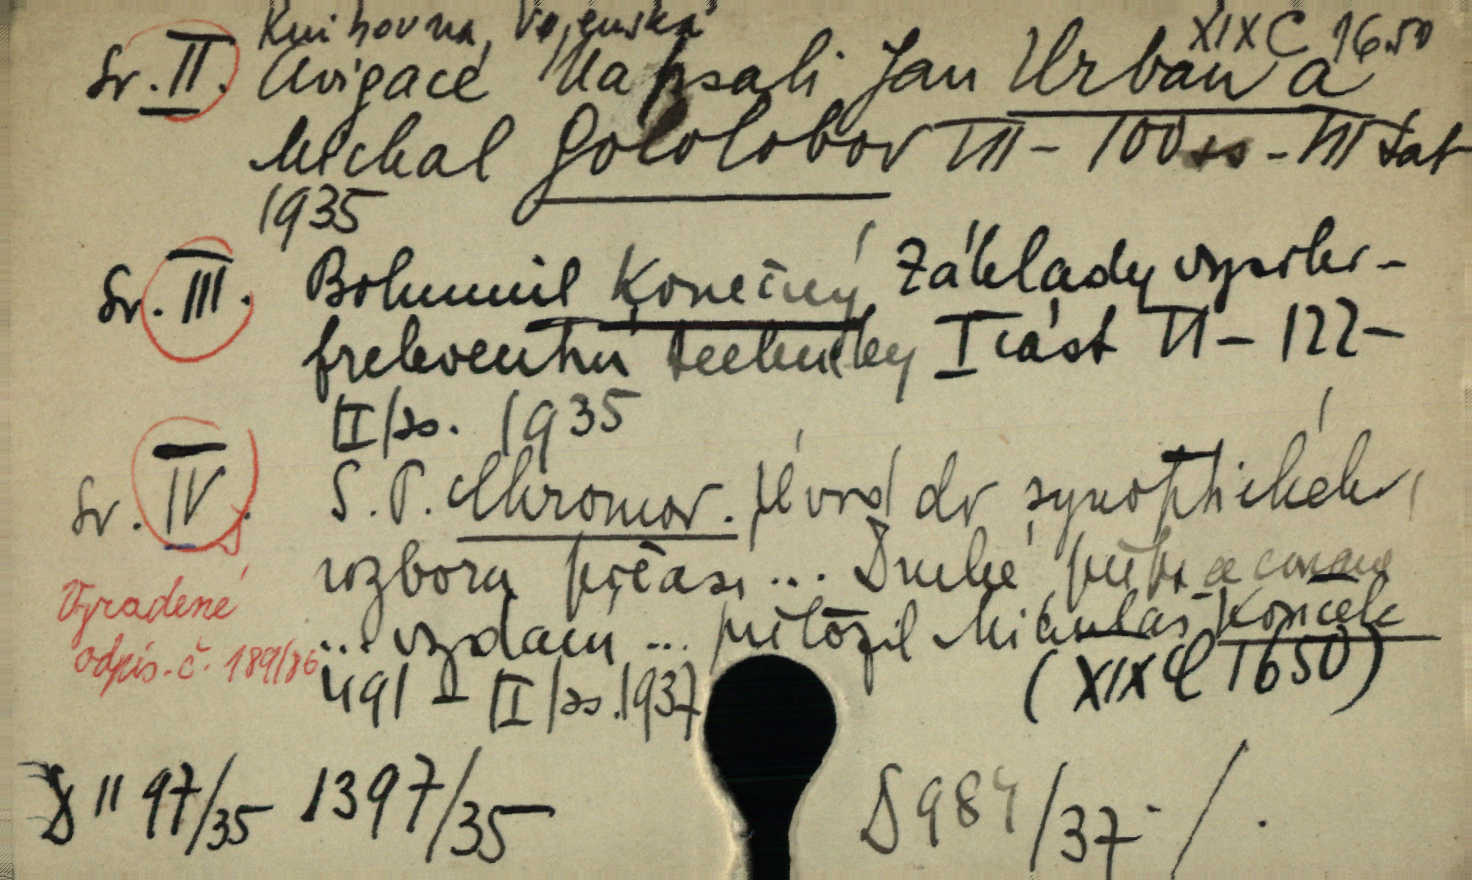 Knihovna Vojenská XIX C 1650
Sv. II. Navigace Napsali Jan Urban a
Michal Gololobov VII - 100 ss - VII tab
1935
Sv. III. Bohumil Konečný Základy vysoko-
frekvenční techniky I část VI - 122 -
II/ss. 1935
Sv. IV. S. P. Chromov. Úvod do synoptického
rozboru počasí ... Druhé přepracované
... vydání ... přeložil Mikuláš Konček
Vyradené
odpis. č. 189/86
491 - II/ss. 1937 (XIX C 1650)
D 1197/35 1397/35 D 984/37 - / .